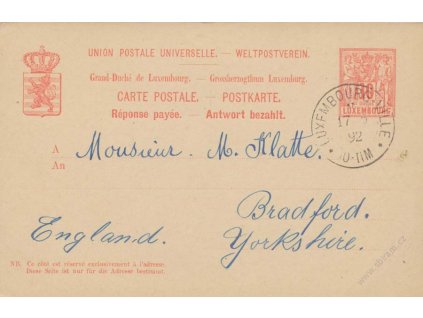 UNION POSTALE UNIVERSELLE. — WELTPOSTVEREIN.
Grand-Duché de Luxembourg. — Grossherzogthum Luxemburg.
CARTE POSTALE. — POSTKARTE.
Réponse payée. — Antwort bezahlt.
LUXEMBOURG
LUXEMBOURG-VILLE
17
92
10-11M
A
An
Monsieur. M. Klatte.
Bradford.
England.
Yorkshire.
NB. Ce côté est réservé exclusivement à l'adresse.
Diese Seite ist nur für die Adresse bestimmt.